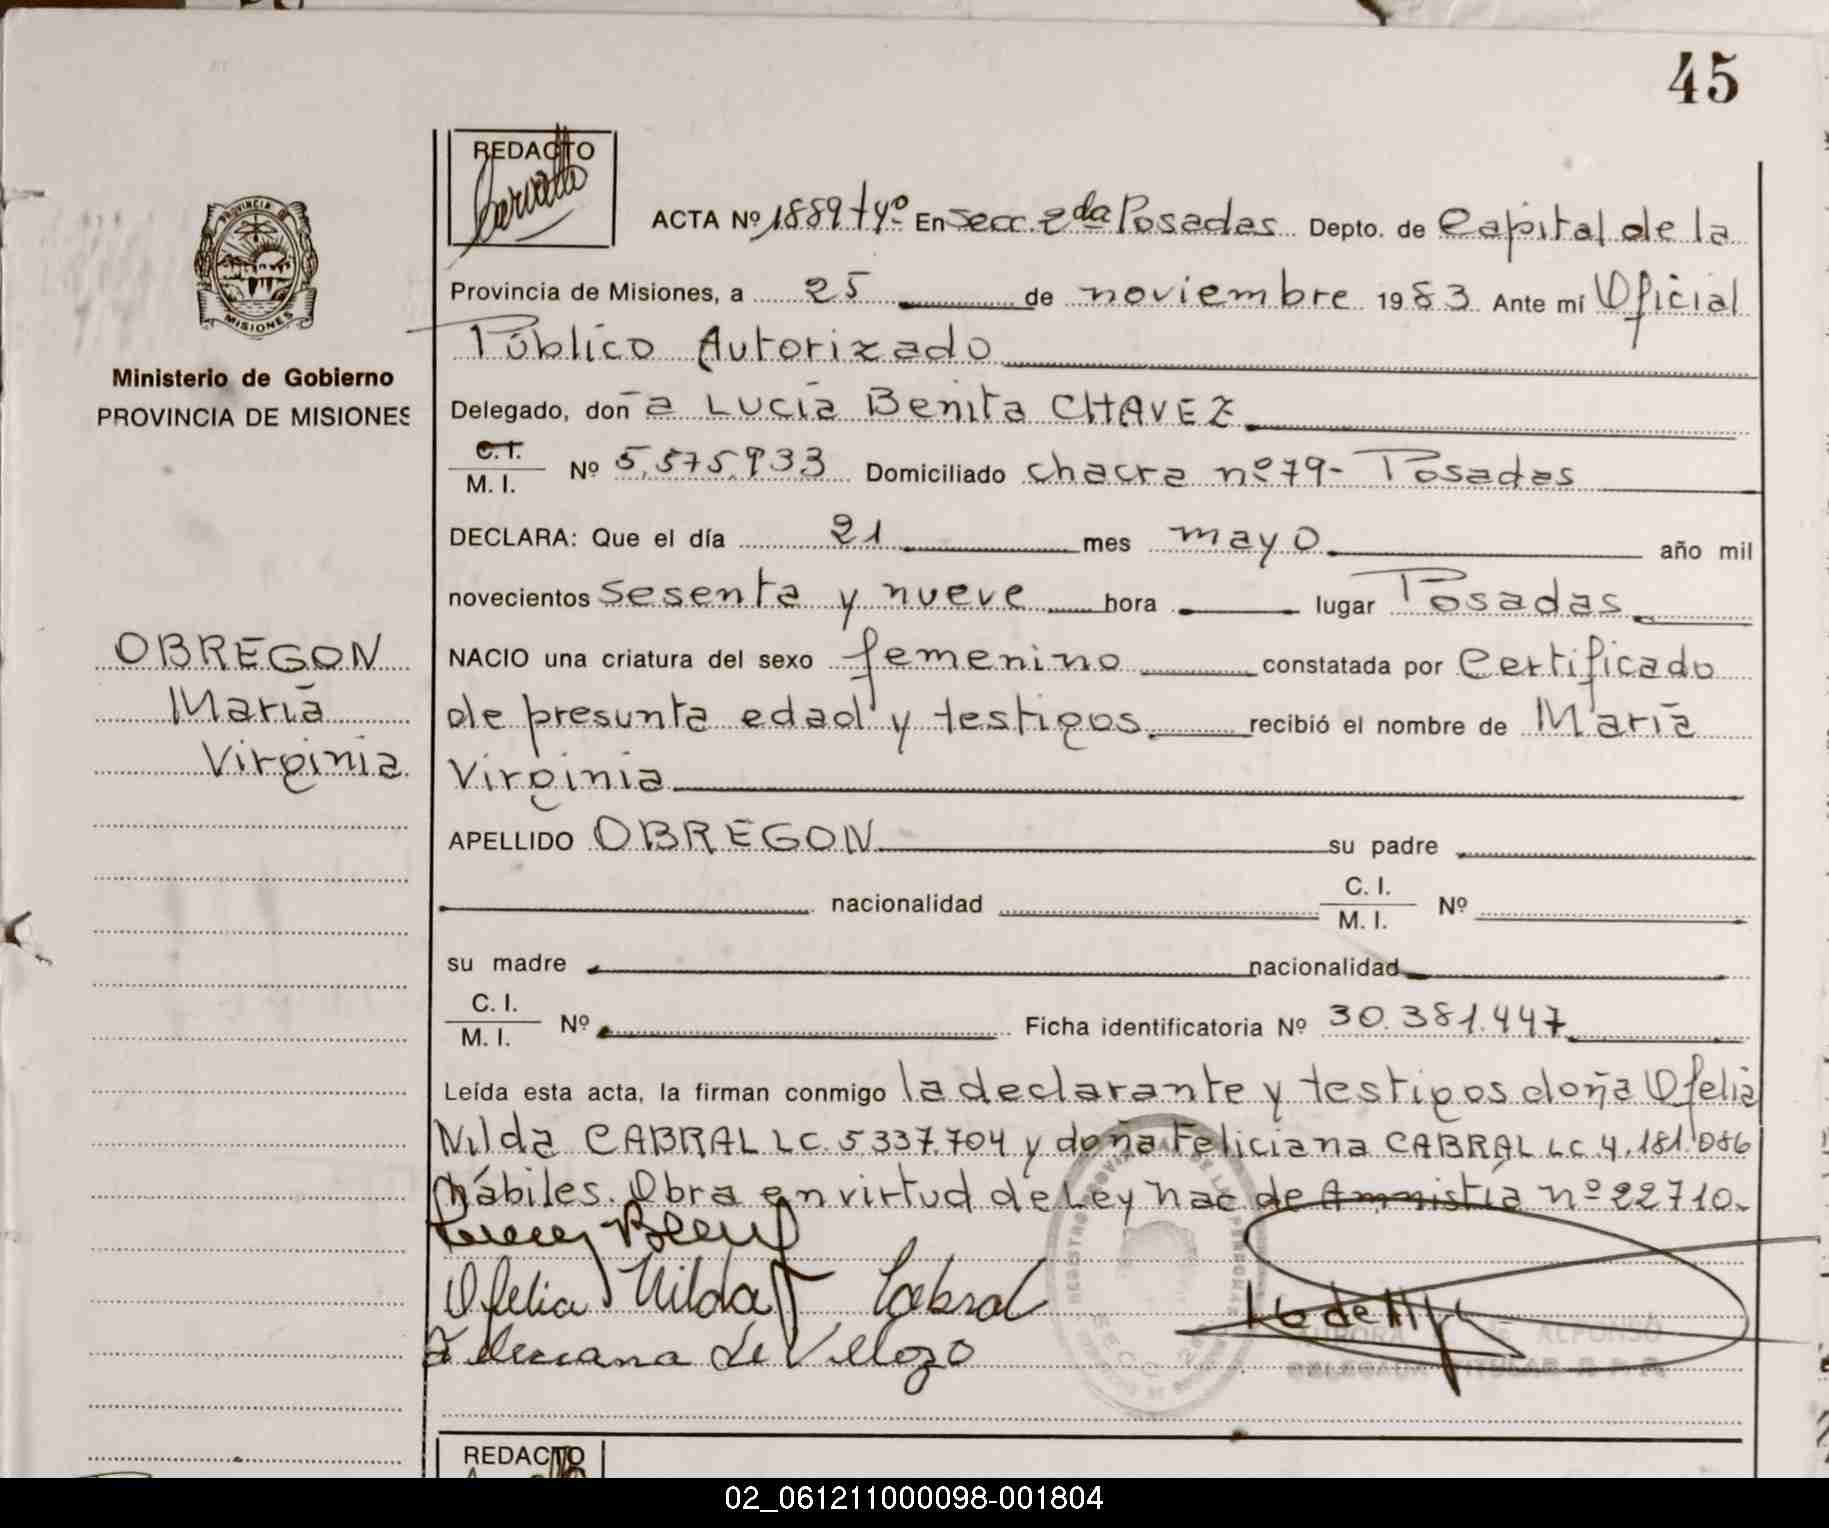 45
REDACTO
ACTA Nº 1889 tº 4º En secc. 2da Posadas Depto. de Capital de la
Provincia de Misiones, a 25 de noviembre 1983 Ante mí Oficial
Público Autorizado
Delegado, doña Lucía Benita CHAVEZ
C.I. / M. I. Nº 5.575.933 Domiciliado chacra nº 79 - Posadas
DECLARA: Que el día 21 mes mayo año mil
novecientos sesenta y nueve hora lugar Posadas
NACIO una criatura del sexo femenino constatada por certificado
de presunta edad y testigos recibió el nombre de María
Virginia
APELLIDO OBREGON su padre
nacionalidad C. I. / M. I. Nº
su madre nacionalidad
C. I. / M. I. Nº Ficha identificatoria Nº 30.381.447
Leída esta acta, la firman conmigo la declarante y testigos doña Ofelia
Nilda CABRAL LC. 5337.704 y doña Feliciana CABRAL LC. 4.181.086
hábiles. Obra en virtud de Ley Nac de Amnistía nº 22710.
Ofelia Nilda Cabral
Feliciana de Velozo
ALFONSO
DELEGADA TITULAR
PROVINCIA DE
MISIONES
Ministerio de Gobierno
PROVINCIA DE MISIONES
OBREGON
María
Virginia
REDACTO
02_061211000098-001804